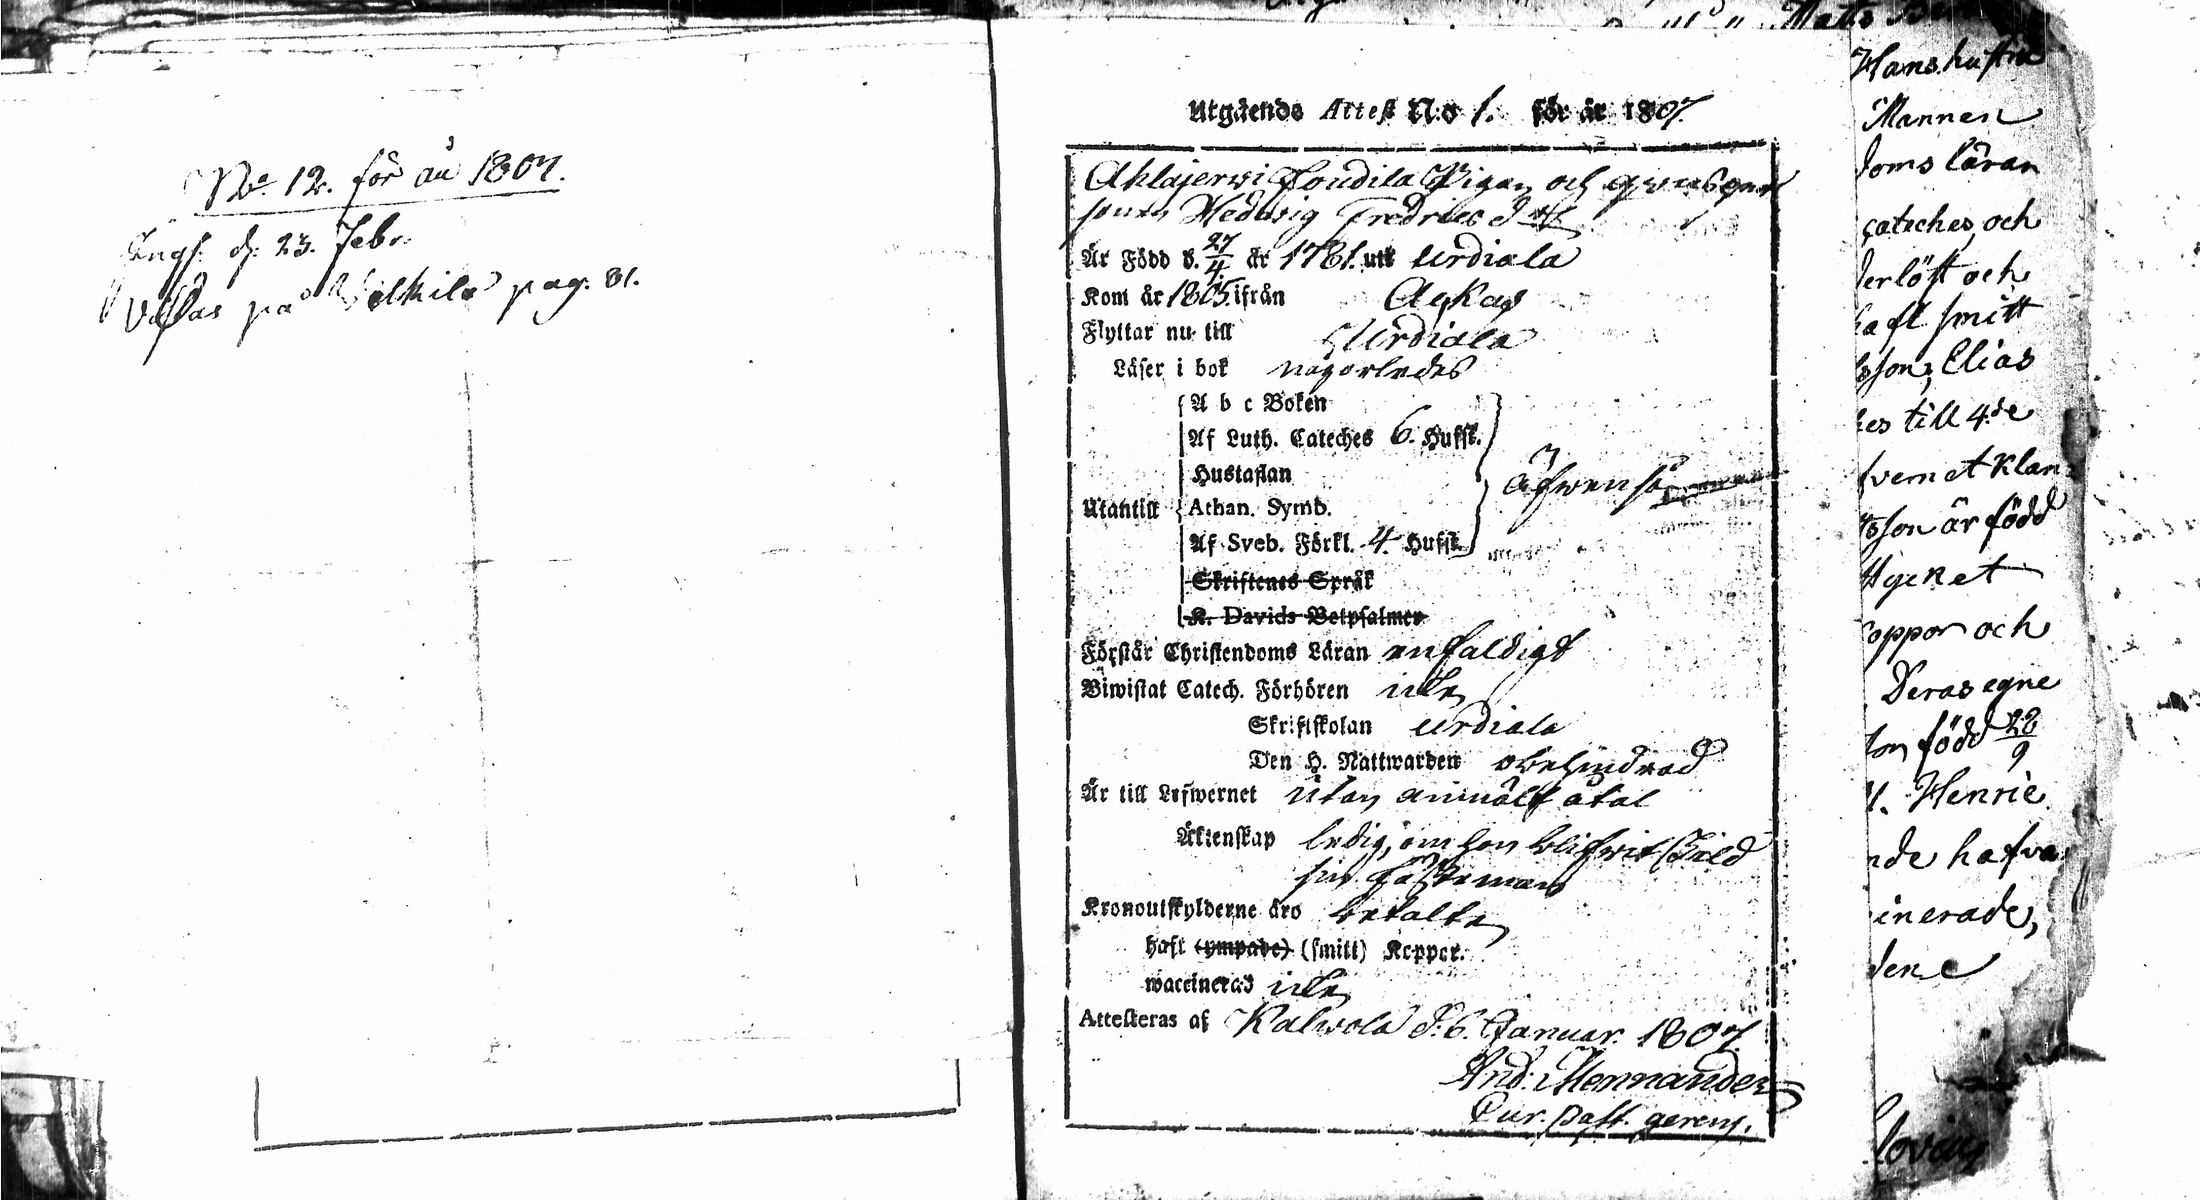 No 12. för år 1807.
Ingf. d. 23. Febr.
Wistas på pag. 81.
Matts
Utgående Attest N:o 1. för år 1807.
Ahlajerwi Pigan och
Hedwig Fredrics d:r
Är Född d. 27/4 år 1781. uti Urdiala
Kom år 1805. ifrån Ackas
Flyttar nu till Urdiala
Läser i bok någorledes
A b c Boken
Af Luth. Cateches 6. Hufst.
Hustaflan
Utantill Athan. Symb. äfwenså
Af Sveb. Förkl. 4. Hufst.
Skriftenes Språk
K. Davids Botpsalmer
Förstår Christendoms Läran enfaldigt
Biwistat Catech. Förhören icke
Skriftskolan Urdiala
Den H. Nattwarden obehindrad
Är till Lefwernet utan anmält åtal
Äktenskap ledig, om hon blifwit skild
sin fästeman
Kronoutskylderne äro betalte
haft (ympade) (smitt) Koppor.
waccinerad icke
Attesteras af Kalwola d. 6. Januar. 1807.
And. Mennander
Cur. Past. gerens.
Hans hustru
Mannen
doms läran
cateches, och
derlöst och
haft smitt
sson, Elias
hes till 4:de
fvernet klan
tsson är född
tycket
oppor och
Deras egne
son född 22/9
H. Henric
nde hafva
inerade,
dene